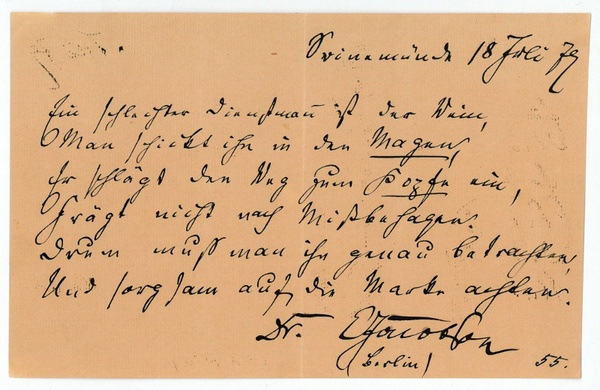 Swinemünde 18 Juli 79
Ein schlechter Dienstmann ist der Wein,
Man schickt ihn in den Magen,
Er schlägt den Weg zum Kopfe ein,
Frägt nicht nach Mißbehagen.
Drum muß man ihn genau betrachten,
Und sorgsam auf die Marke achten.
Dr. EJacobson
(Berlin)
55.